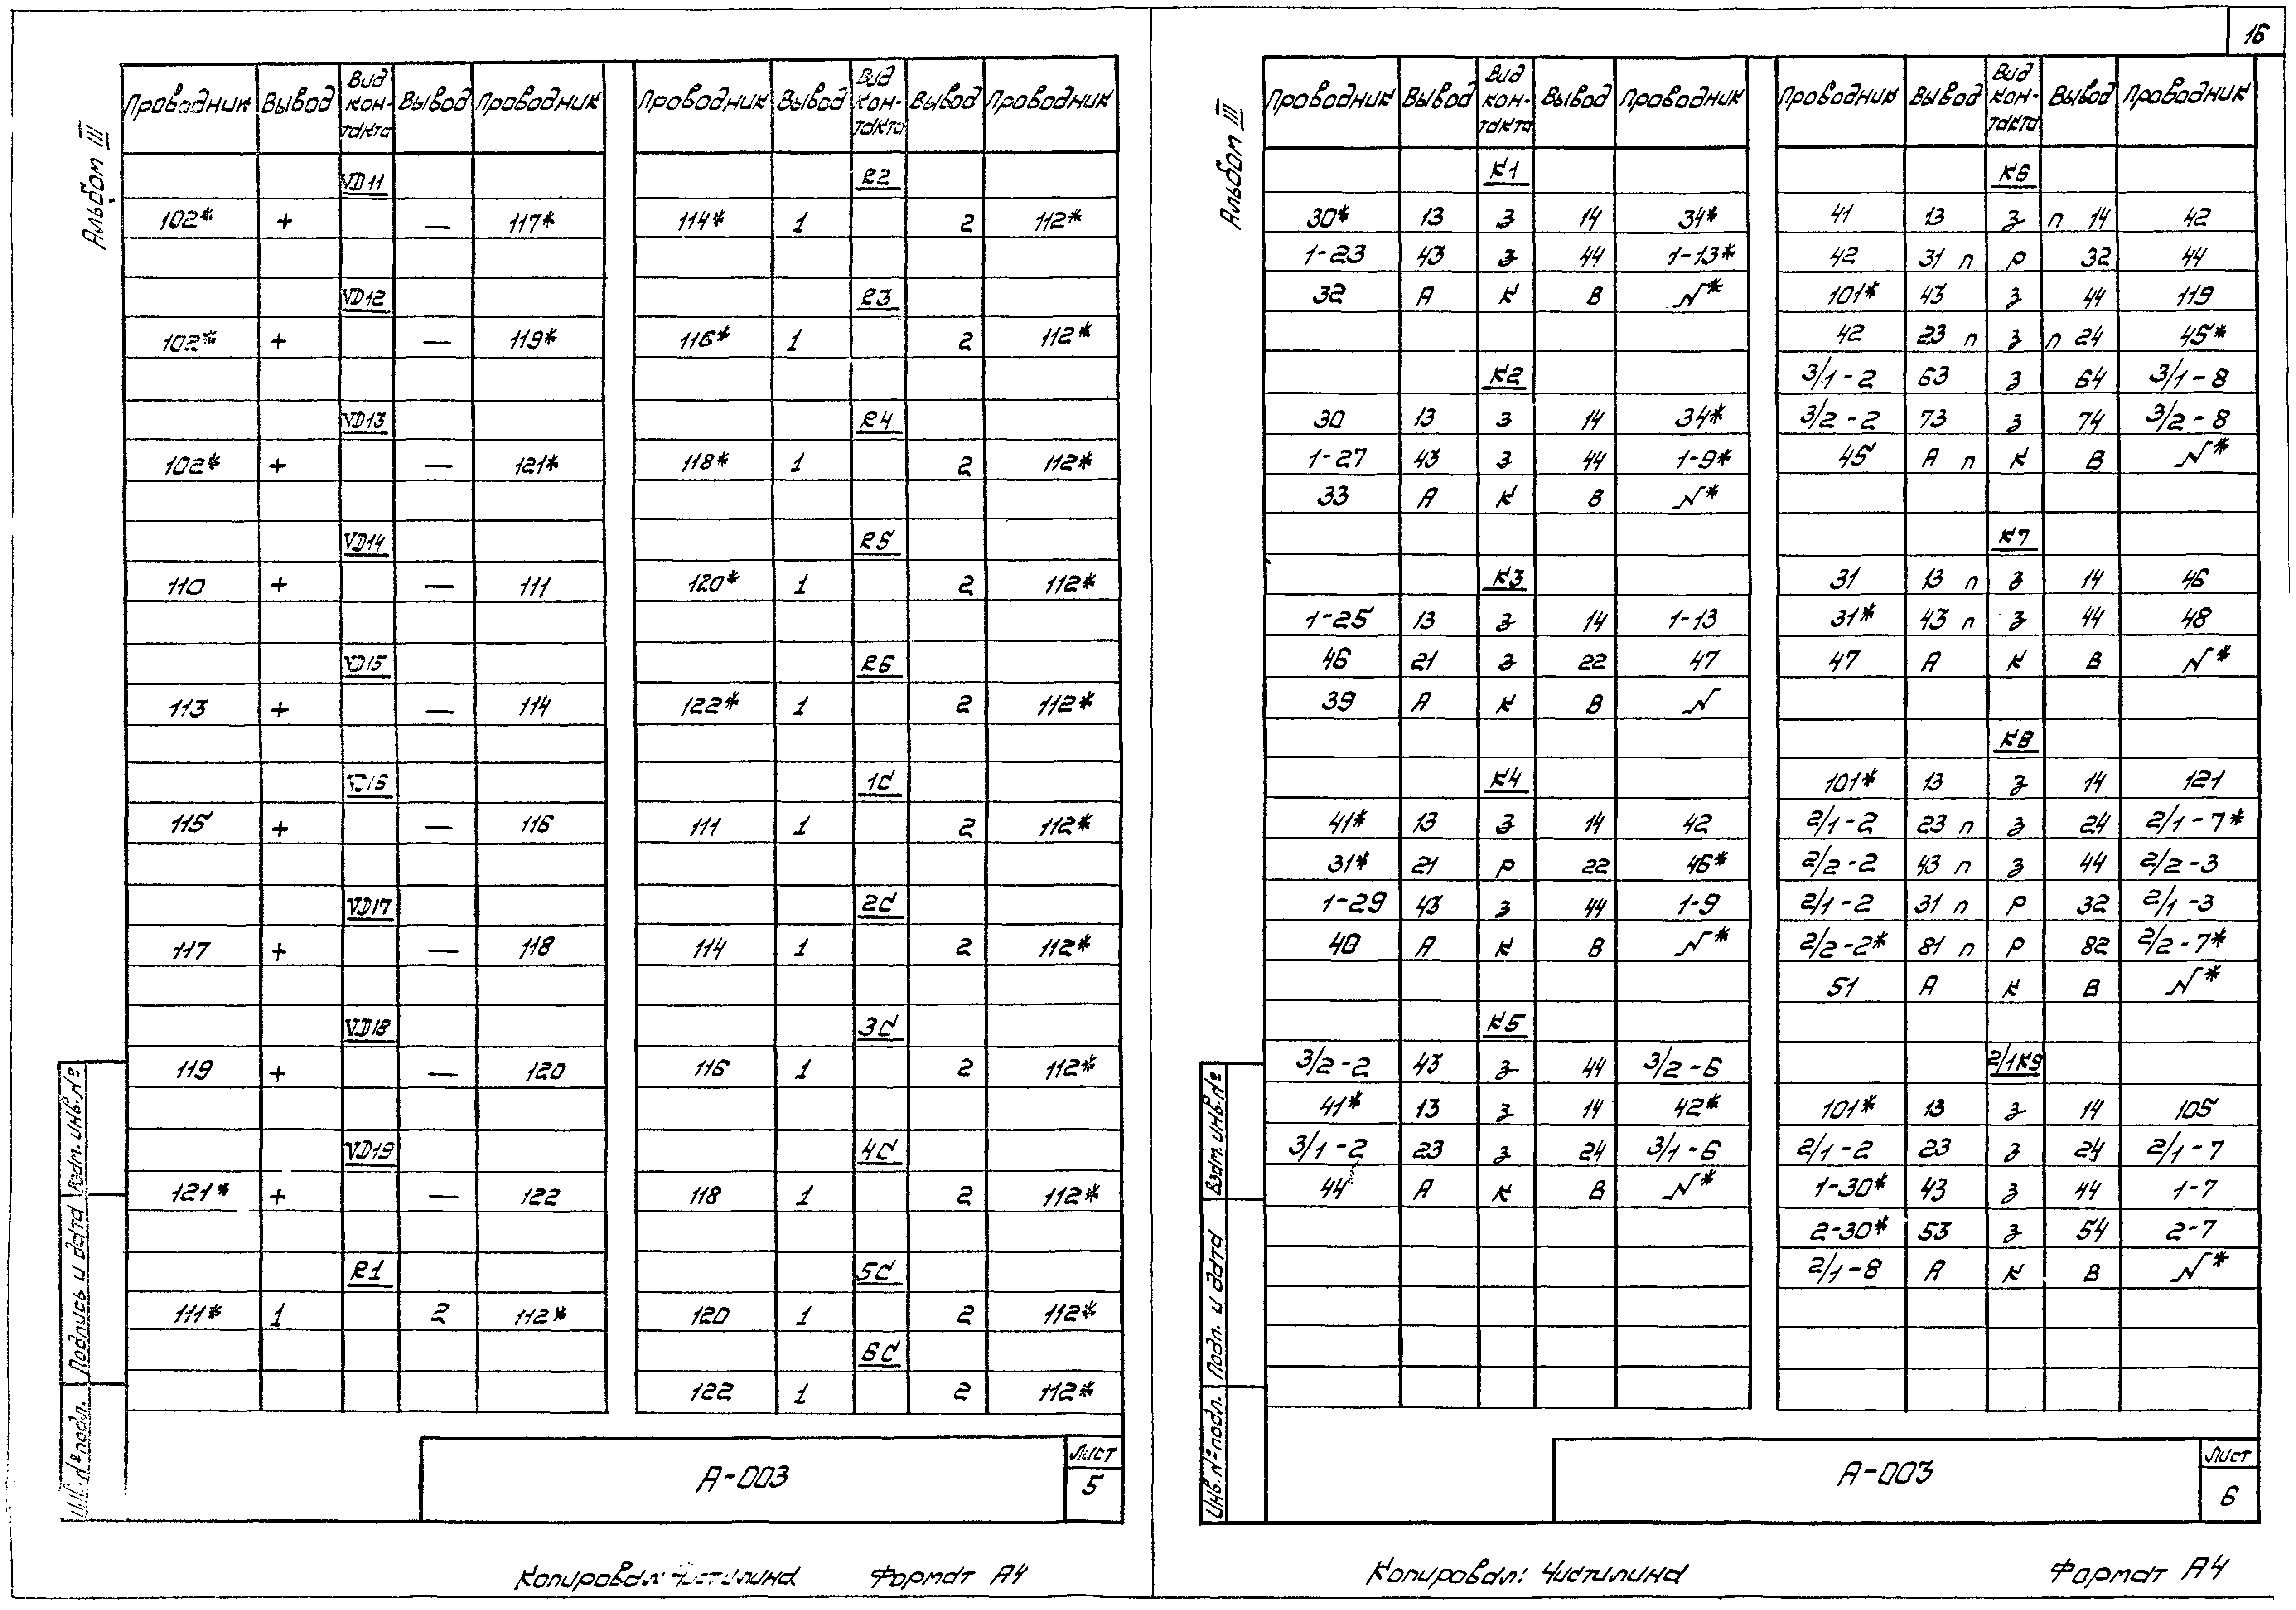 16
Альбом III
Проводник Вывод Вид кон-такта Вывод Проводник
VD11
102* + — 117*
VD12
102* + — 119*
VD13
102* + — 121*
VD14
110 + — 111
VD15
113 + — 114
115 + — 116
VD17
117 + — 118
VD18
119 + — 120
VD19
121* + — 122
R1
111* 1 2 112*
Проводник Вывод Вид кон-такта Вывод Проводник
R2
114* 1 2 112*
R3
116* 1 2 112*
R4
118* 1 2 112*
R5
120* 1 2 112*
R6
122* 1 2 112*
1C
111 1 2 112*
2C
114 1 2 112*
3C
116 1 2 112*
4C
118 1 2 112*
5C
120 1 2 112*
6C
122 1 2 112*
Взам. инв. №
Подпись и дата
Инв. № подл.
А-003
Лист
5
Копировал: Чистилина Формат А4
Альбом III
Проводник Вывод Вид кон-такта Вывод Проводник
К1
30* 13 з 14 34*
1-23 43 з 44 1-13*
32 А К В N*
К2
30 13 з 14 34*
1-27 43 з 44 1-9*
33 А К В N*
К3
1-25 13 з 14 1-13
46 21 з 22 47
39 А К В N
К4
41* 13 з 14 42
31* 21 р 22 46*
1-29 43 з 44 1-9
40 А К В N*
К5
3/2-2 43 з 44 3/2-6
41* 13 з 14 42*
3/1-2 23 з 24 3/1-6
44 А К В N*
Проводник Вывод Вид кон-такта Вывод Проводник
К6
41 13 з п 14 42
42 31 п р 32 44
101* 43 з 44 119
42 23 п з п 24 45*
3/1-2 63 з 64 3/1-8
3/2-2 73 з 74 3/2-8
45 А п К В N*
К7
31 13 п з 14 46
31* 43 п з 44 48
47 А К В N*
К8
101* 13 з 14 121
2/1-2 23 п з 24 2/1-7*
2/2-2 43 п з 44 2/2-3
2/1-2 31 п р 32 2/1-3
2/2-2* 81 п р 82 2/2-7*
51 А К В N*
2/1К9
101* 13 з 14 105
2/1-2 23 з 24 2/1-7
1-30* 43 з 44 1-7
2-30* 53 з 54 2-7
2/1-8 А К В N*
Взам. инв. №
Подп. и дата
Инв. № подл.
А-003
Лист
6
Копировал: Чистилина Формат А4